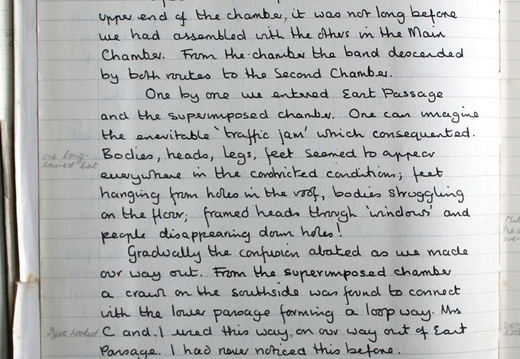 upper end of the chamber, it was not long before
we had assembled with the others in the Main
Chamber. From the chamber the band descended
by both routes to the Second Chamber.
One by one we entered East Passage
and the superimposed chamber. One can imagine
the enevitable 'traffic jam' which consequented.
Bodies, heads, legs, feet seemed to appear
everywhere in the constricted conditions; feet
hanging from holes in the roof, bodies struggling
on the floor; framed heads through 'windows' and
people disappearing down holes!
Gradually the confusion abated as we made
our way out. From the superimposed chamber
a crawl on the southside was found to connect
with the lower passage forming a loop way. Mrs
C and I used this way, on our way out of East
Passage. I had never noticed this before.
one long-
eared bat